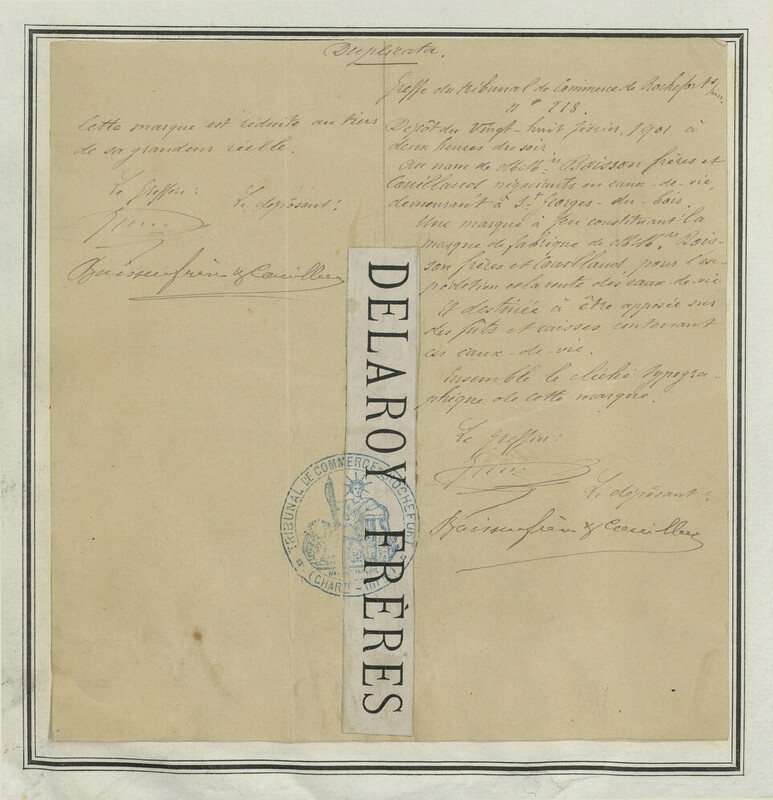 Duplicata.
Cette marque est réduite au tiers
de sa grandeur réelle.
Le Greffier:
Le déposant:
Boisson frères & Couilland
Greffe du tribunal de Commerce de Rochefort
n° 218.
Dépôt du Vingt-huit février, 1901 à
deux heures du soir
Au nom de MM. Boisson frères et
Couilland négociants en eaux-de-vie,
demeurant à St Georges-du-bois.
Une marque à feu constituant la
marque de fabrique de MM. Bois-
son frères et Couilland, pour l'ex-
pédition et la vente des eaux-de-vie
Et destinée à être apposée sur
des fûts et caisses contenant
ces eaux-de-vie.
Ensemble le cliché typogra-
phique de cette marque.
Le Greffier:
Le déposant:
Boisson frères & Couilland
DELAROY FRÈRES
TRIBUNAL DE COMMERCE ROCHEFORT
(CHARTE - INF